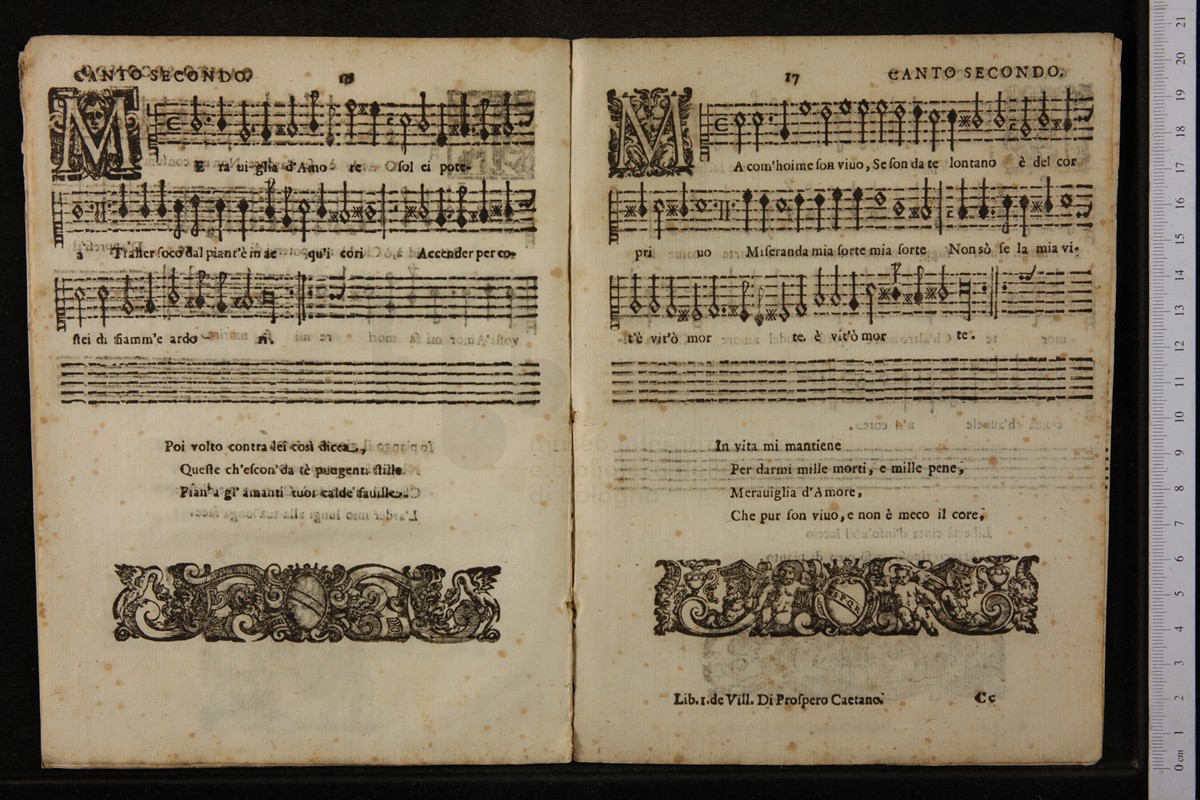 CANTO SECONDO.
M
E ra ui glia d'Amo re O sol ei pote-
a Trasser foco dal piant'è in ac qu'i cori Accender per co-
stei di fiamm'e ardo ri.
Poi volto contra lei così dicea,
Queste ch'escon'da tè pungenti stille
Pian'a gl' amanti tuoi calde fauille.
17 CANTO SECONDO.
M
A com'hoime son viuo, Se son da te lontano è del cor
pri uo Miseranda mia sorte mia sorte Non sò se la mia vi-
t'è vit'ò mor te. è vit'ò mor te.
In vita mi mantiene
Per darmi mille morti, e mille pene,
Merauiglia d'Amore,
Che pur son viuo, e non è meco il core,
S.P.Q.R.
Lib. 1. de Vill. Di Prospero Caetano. Cc
0 cm 1 2 3 4 5 6 7 8 9 10 11 12 13 14 15 16 17 18 19 20 21